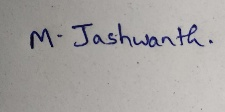 M. Jashwanth.